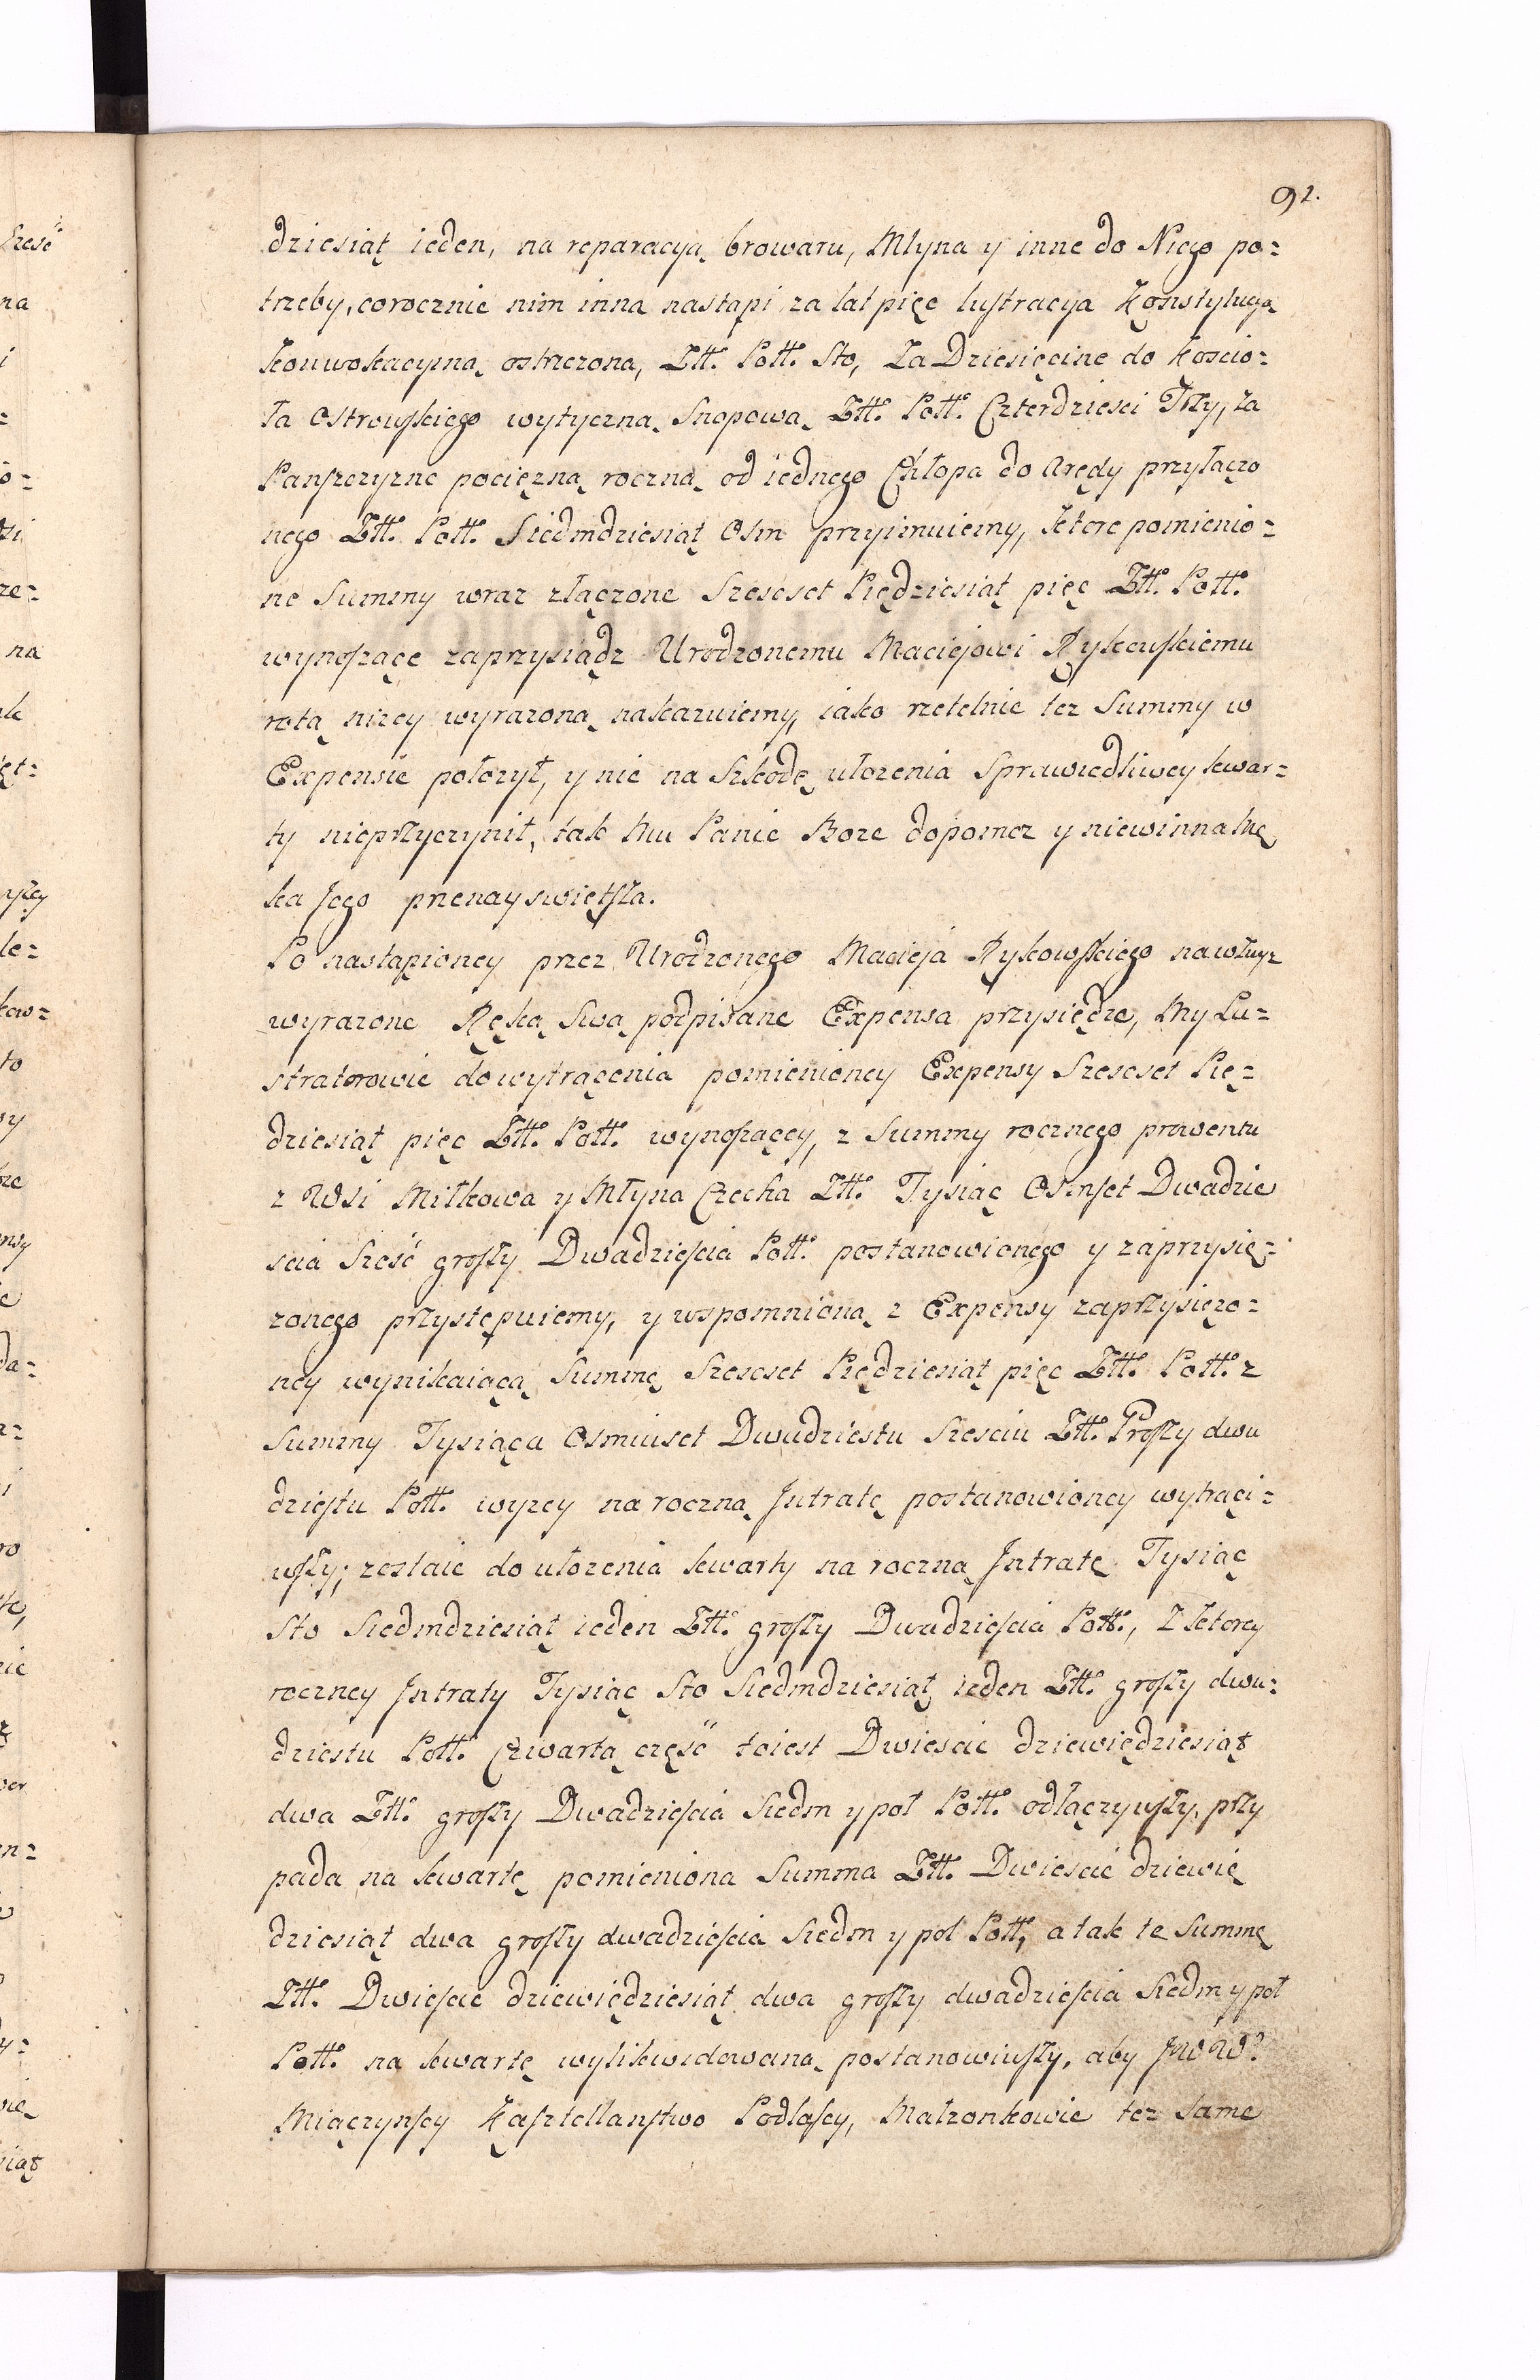 92.
dziesiąt ieden, na reparacyą browaru, Młyna y inne do Niego po=
trzeby, corocznie nim inna nastąpi za lat pięc lustracya Konstytucyą
konwokacyiną ostrzezona, Ztt. Poll. Sto, Za Dziesięcine do koscio=
ła Ostrowskiego wytyczną Snopową Ztt. Poll. Czterdziesci Trzy, za
Panszczyznę pociężną roczną od iednego Chłopa do Arędy przyłączo
nego Ztt. Poll. Siedmdziesiąt Osm przyimuiemy, ktore pomienio=
ne Summy wraz złączone Szescset Pięćdziesiąt pięc Ztt. Poll.
wynoszące zaprzysiądz Urodzonemu Maciejowi Rykowskiemu
rotą nizey wyrazoną nakazuiemy, iako rzetelnie tez Summy w
Expensie połozył, y nic na Szkodę ułozenia Sprawiedliwey kwar=
ty nieprzyczynił, tak Mu Panie Boze dopomoz y niewinna Mę
ka Jego przenayswiętsza.
Po nastąpioney przez Urodzonego Macieja Rykowskiego na wzwyz
wyrazone Ręką Swą podpisane Expensa przysiędze, My Lu=
stratorowie do wytrącenia pomienioney Expensy Szescset Pię=
dziesiąt pięc Ztt. Poll. wynoszącey, z Summy rocznego prowentu
z Wsi Miłkowa y Młyna Czecha Ztt. Tysiąc Osmset Dwadzie
scia Sześć groszy Dwadziescia Poll. postanowionego y zaprzysię=
zonego przystępuiemy, y wspomnioną z Expensy zaprzysięzo=
ney wynikaiącą Summę Szescset Pięćdziesiąt pięc Ztt. Poll. z
Summy Tysiąca Osmiuset Dwudziestu Szesciu Ztt. Groszy dwu
dziestu Poll. wyzey na roczną Jntratę postanowioney wytrąci=
wszy; zostaie do ułozenia kwarty na roczną Jntratę Tysiąc
Sto Siedmdziesiąt ieden Ztt. groszy Dwadziescia Poll., Z ktorey
roczney Jntraty Tysiąc Sto Siedmdziesiąt ieden Ztt. groszy dwu=
dziestu Poll. Czwartą część toiest Dwiescie dziewiędziesiąt
dwa Ztt. groszy Dwadziescia Siedm y poł Poll. odłączywszy, przy
pada na kwartę pomieniona Summa Ztt. Dwiescie dziewię
dziesiąt dwa groszy dwadziescia Siedm y poł Poll., a tak te Summę
Ztt. Dwiescie dziewiędziesiąt dwa groszy dwadziescia Siedm y poł
Poll. na kwartę wylikwidowaną postanowiwszy, aby JWW.
Miączyńscy Kasztellanstwo Podlascy, Małzonkowie tez Same